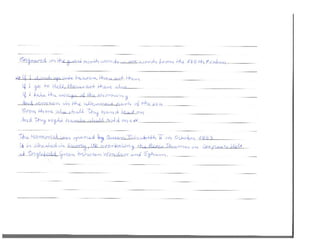 Engraved on the great north window are words from the 139th Psalm:
If I climb up into heaven, thou art there
If I go to hell, thou art there also
If I take the wings of the morning
And remain in the uttermost parts of the sea
Even there also shall thy hand lead me
And thy right hand shall hold me
The Memorial was opened by Queen Elizabeth II in October 1953
It is situated in Surrey, UK overlooking the River Thames on Cooper's Hill
at Englefield Green between Windsor and Egham.